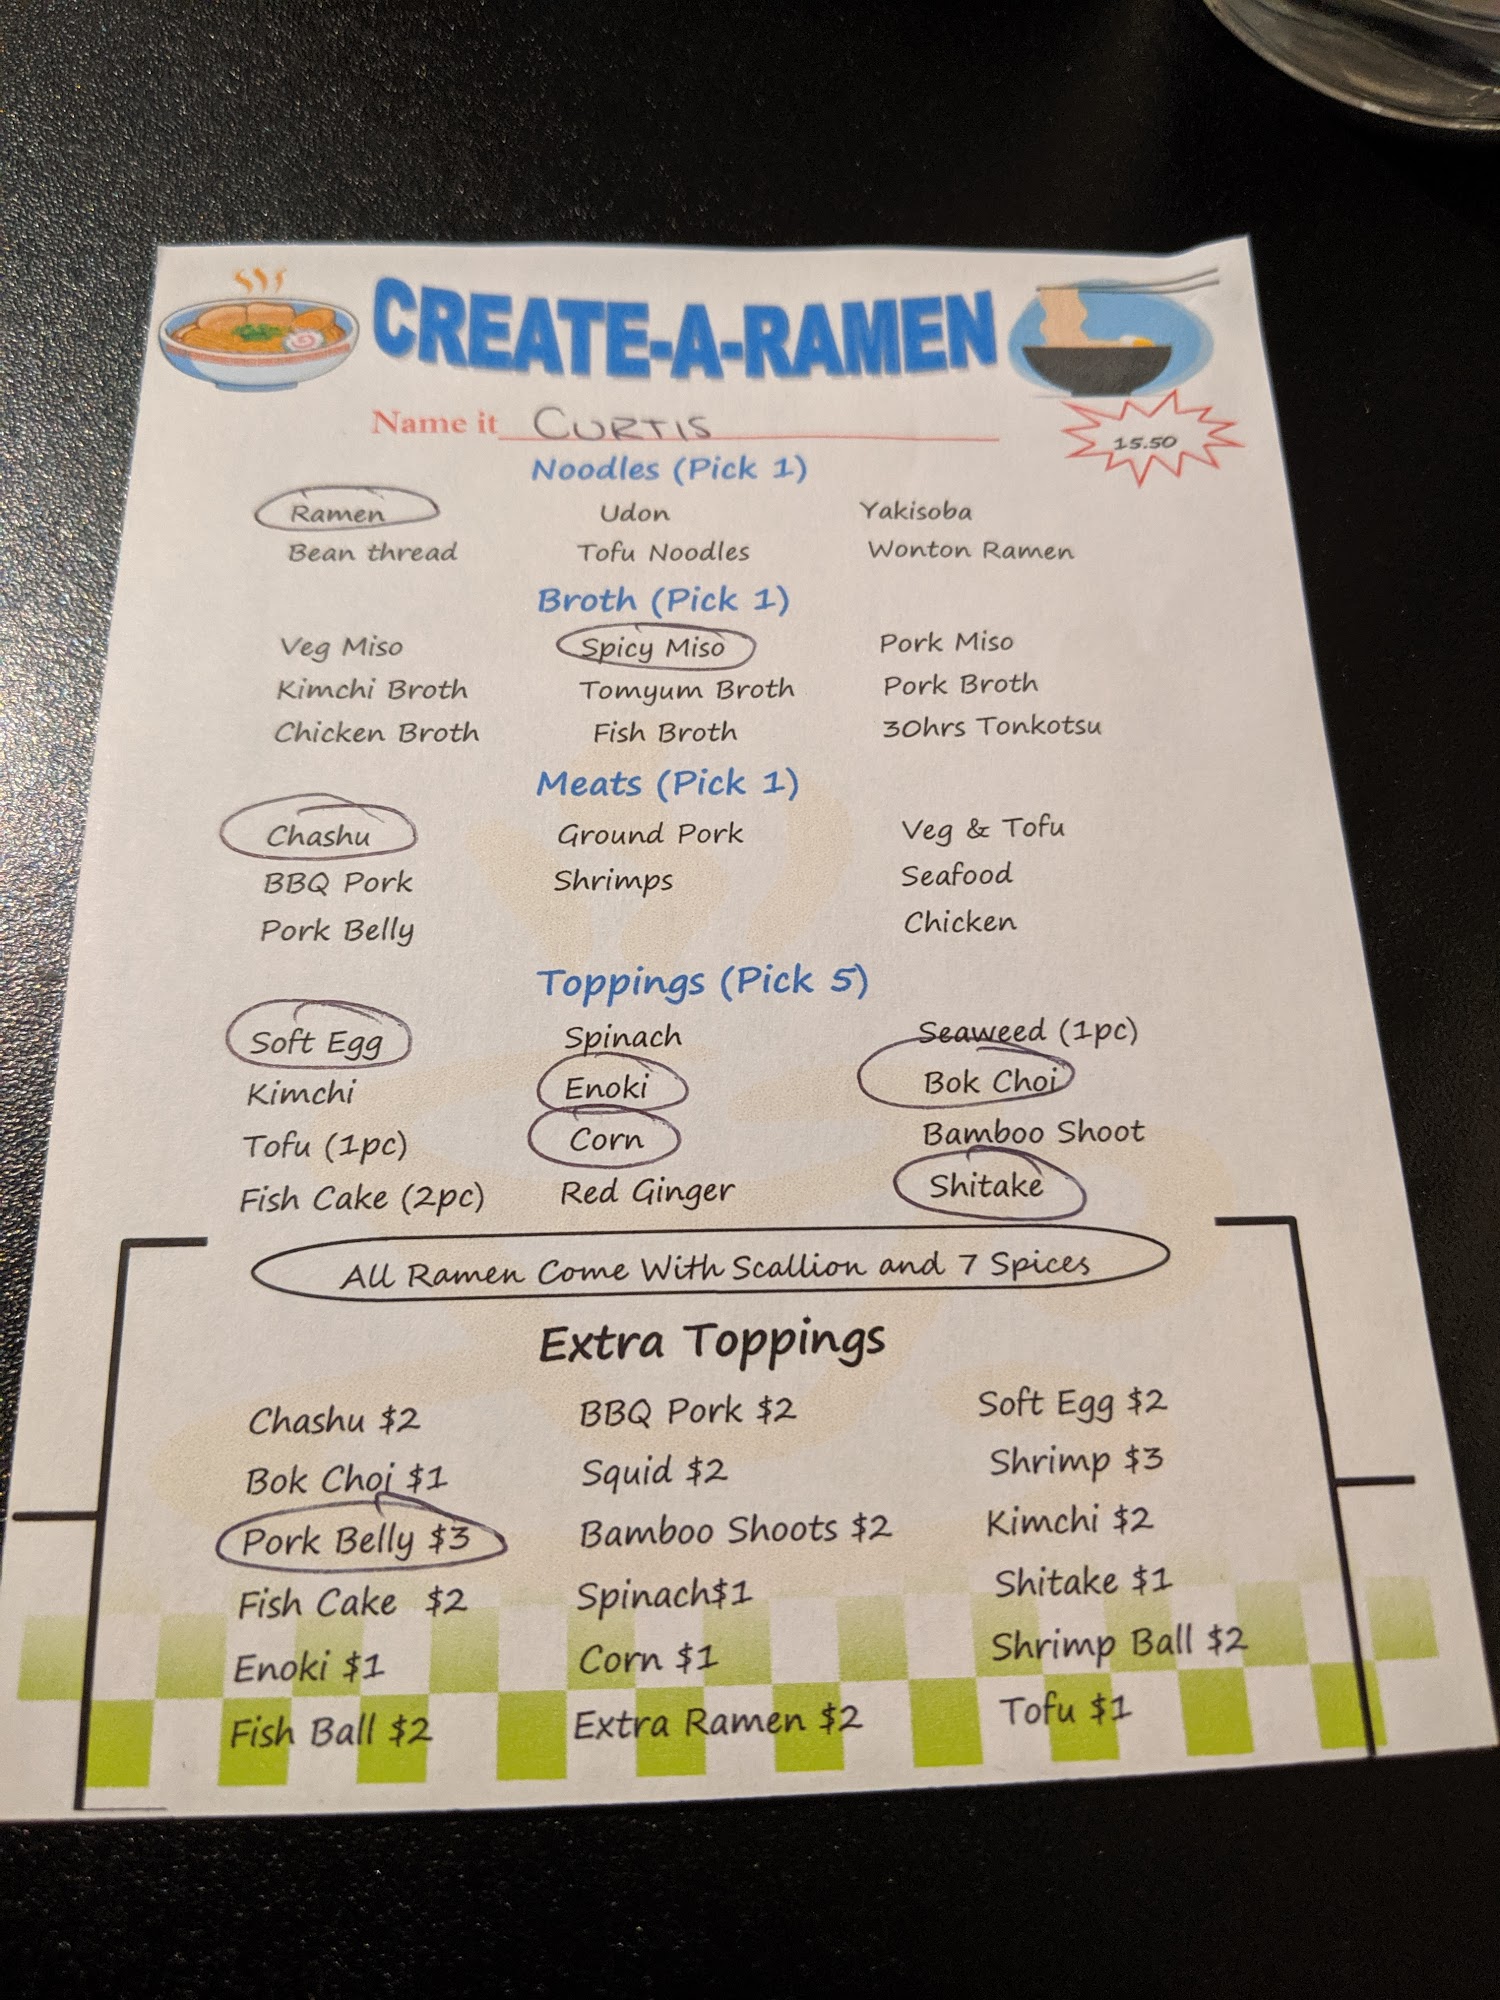 CREATE-A-RAMEN
Name it CURTIS
15.50
Noodles (Pick 1)
Ramen Udon Yakisoba
Bean thread Tofu Noodles Wonton Ramen
Broth (Pick 1)
Veg Miso Spicy Miso Pork Miso
Kimchi Broth Tomyum Broth Pork Broth
Chicken Broth Fish Broth 30hrs Tonkotsu
Meats (Pick 1)
Chashu Ground Pork Veg & Tofu
BBQ Pork Shrimps Seafood
Pork Belly Chicken
Toppings (Pick 5)
Soft Egg Spinach Seaweed (1pc)
Kimchi Enoki Bok Choi
Tofu (1pc) Corn Bamboo Shoot
Fish Cake (2pc) Red Ginger Shitake
All Ramen Come With Scallion and 7 Spices
Extra Toppings
Chashu $2 BBQ Pork $2 Soft Egg $2
Bok Choi $1 Squid $2 Shrimp $3
Pork Belly $3 Bamboo Shoots $2 Kimchi $2
Fish Cake $2 Spinach$1 Shitake $1
Enoki $1 Corn $1 Shrimp Ball $2
Fish Ball $2 Extra Ramen $2 Tofu $1